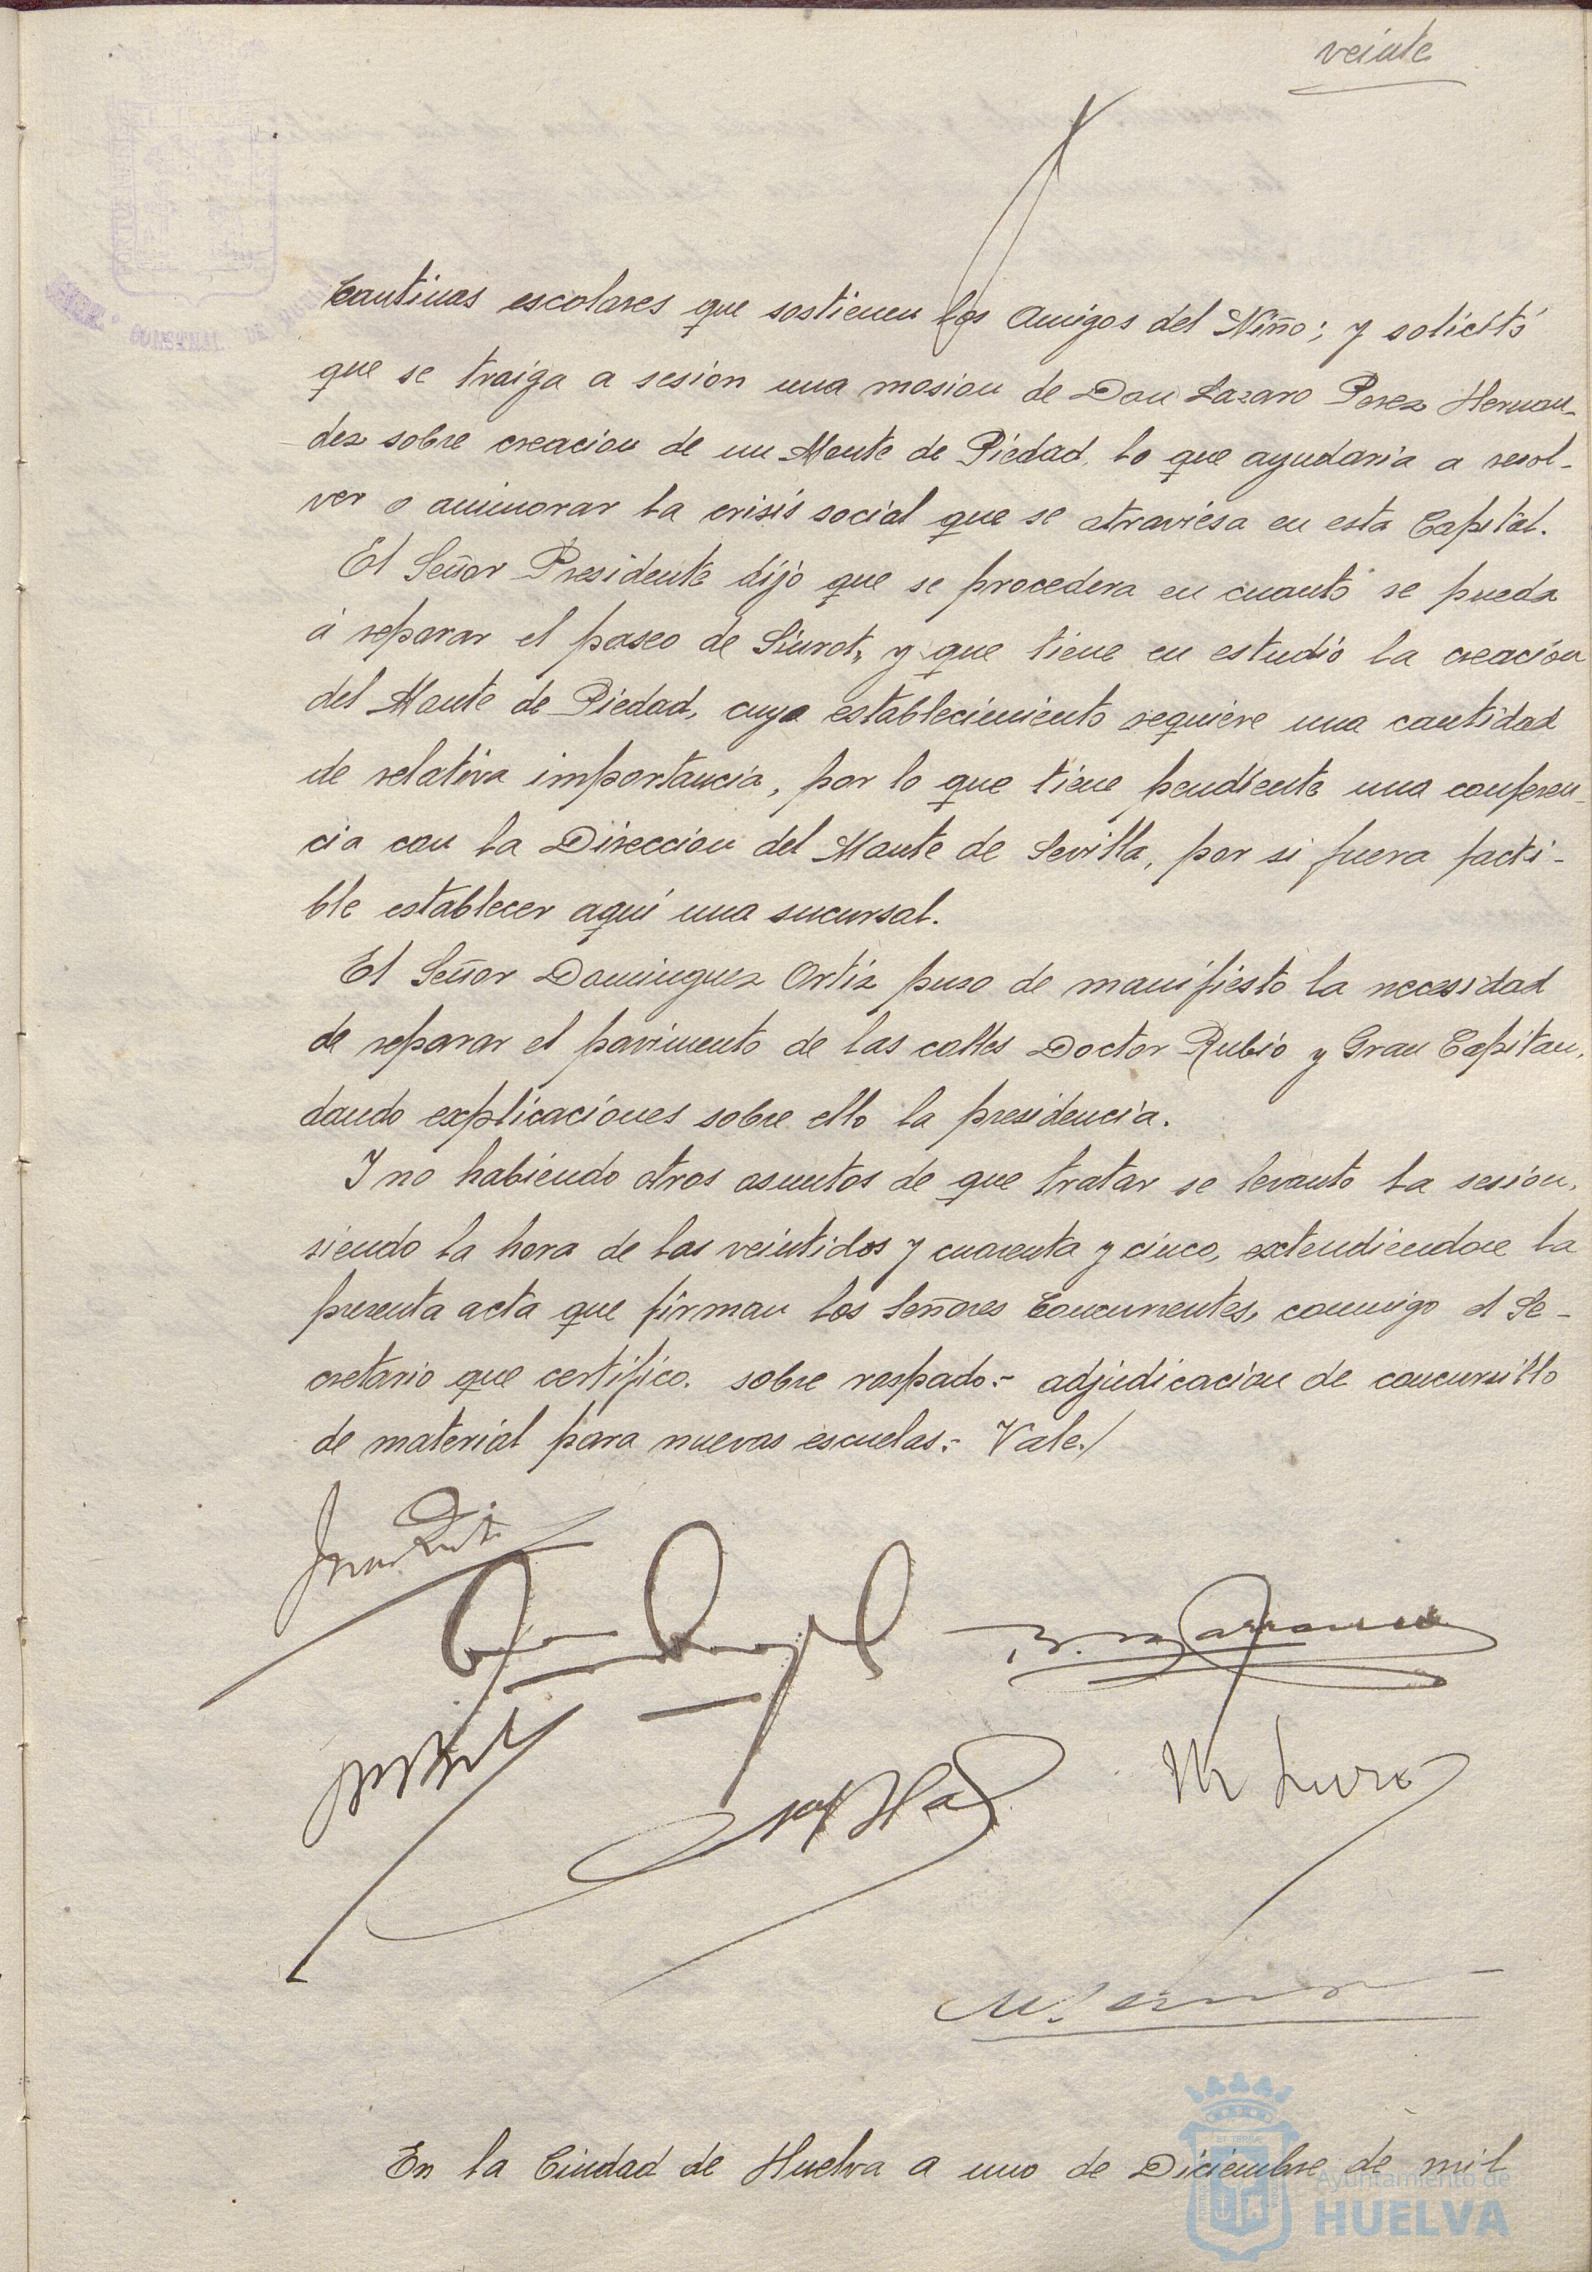 veinte
Cantinas escolares que sostienen los Amigos del Niño; y solicitó
que se traiga a sesion una mosion de Don Lazaro Perez Hernan-
dez sobre creacion de un Monte de Piedad, lo que ayudaria a resol-
ver o aminorar la crisis social que se atraviesa en esta Capital.
El Señor Presidente dijo que se procedera en cuanto se pueda
á reparar el paseo de Siurot, y que tiene en estudio la creación
del Monte de Piedad, cuyo establecimiento requiere una cantidad
de relativa importancia, por lo que tiene pendiente una conferen-
cia con la Direccion del Monte de Sevilla, por si fuera facti-
ble establecer aqui una sucursal.
El Señor Dominguez Ortiz puso de manifiesto la necesidad
de reparar el pavimento de las calles Doctor Rubio y Gran Capitan,
dando explicaciones sobre ello la presidencia.
Y no habiendo otros asuntos de que tratar se levanto la sesión,
siendo la hora de las veintidos y cuarenta y cinco, extendiendose la
presenta acta que firman los Señores Concurrentes, conmigo el Se-
cretario que certifico. sobre raspado:- adjudicacion de concursillo
de material para nuevas escuelas:- Vale./
En la Ciudad de Huelva a uno de Diciembre de mil
Ayuntamiento de
HUELVA